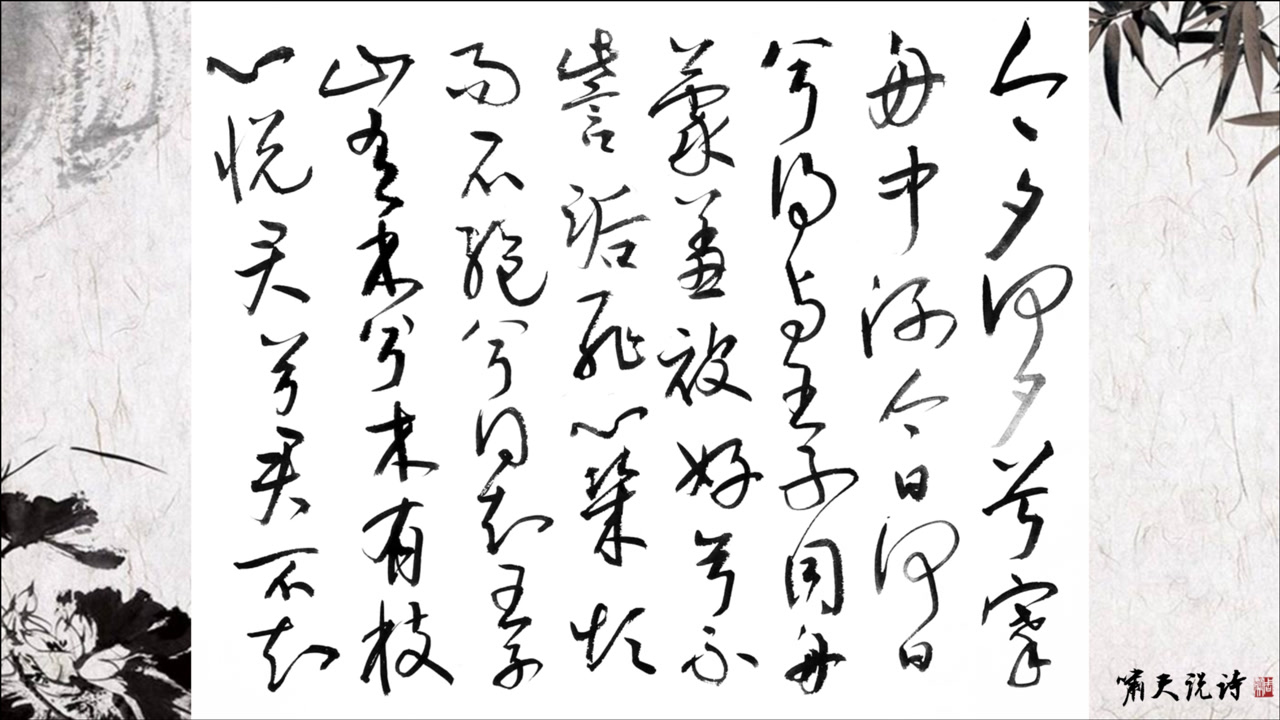 今夕何夕兮搴
舟中流今日何日
兮得与王子同舟
蒙羞被好兮不
訾诟耻心几烦
而不绝兮得知王子
山有木兮木有枝
心悦君兮君不知
嘯天说诗